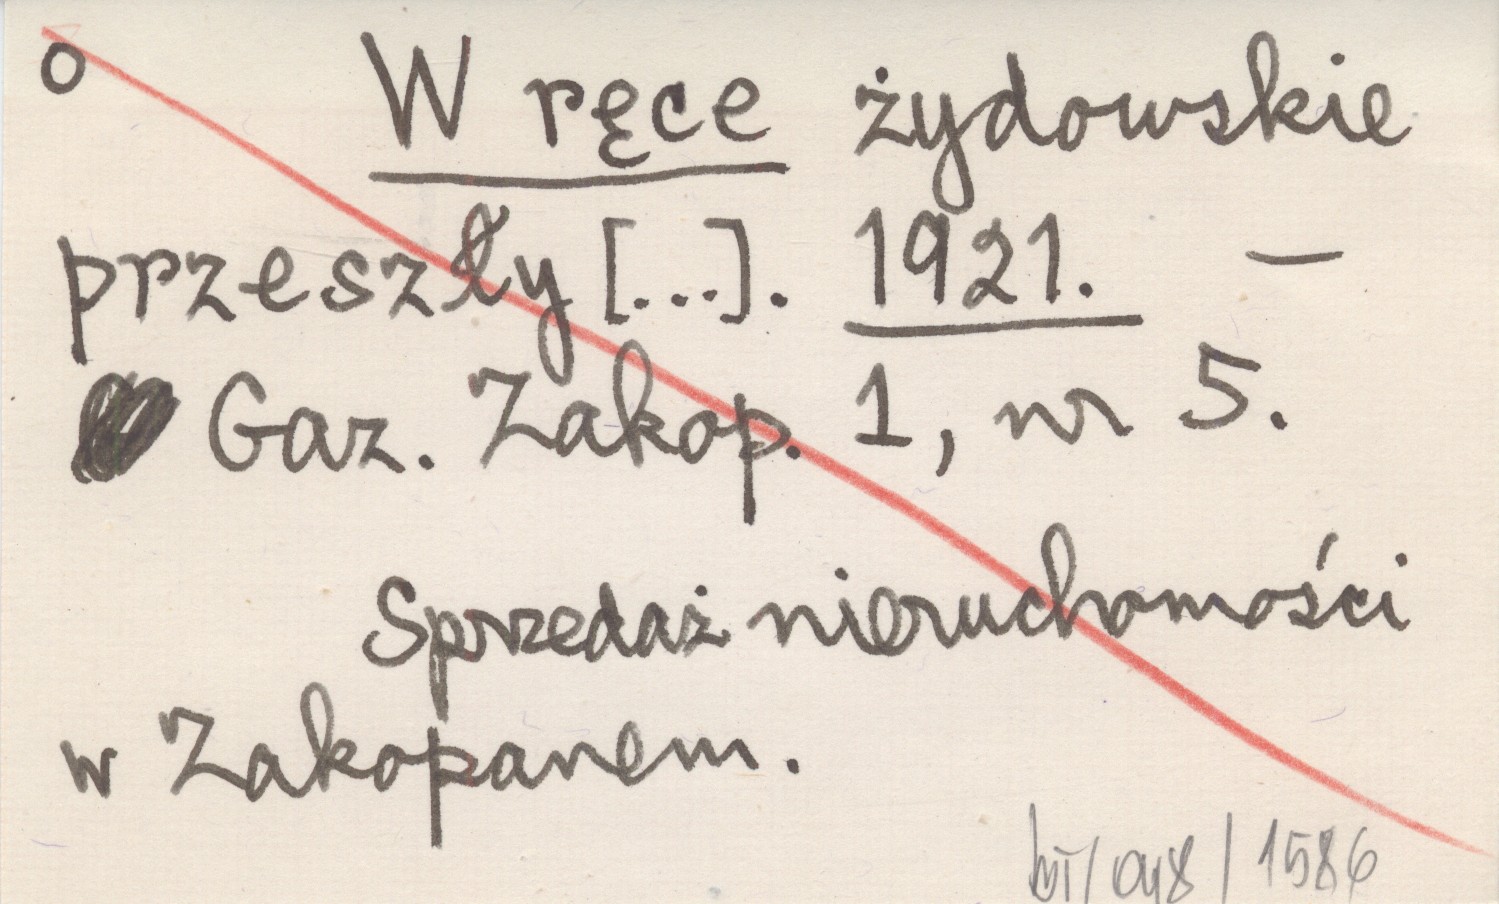 o W ręce żydowskie
przeszły [...]. 1921. –
Gaz. Zakop. 1, nr 5.
Sprzedaż nieruchomości
w Zakopanem.
1586